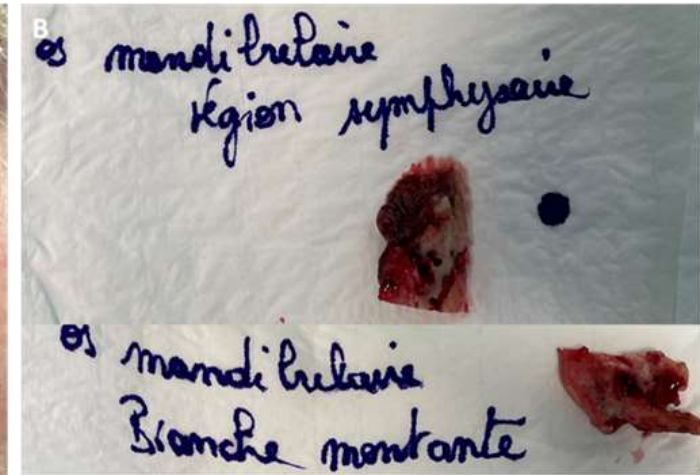 B
os mandibulaire
région symphysaire
os mandibulaire
Branche montante